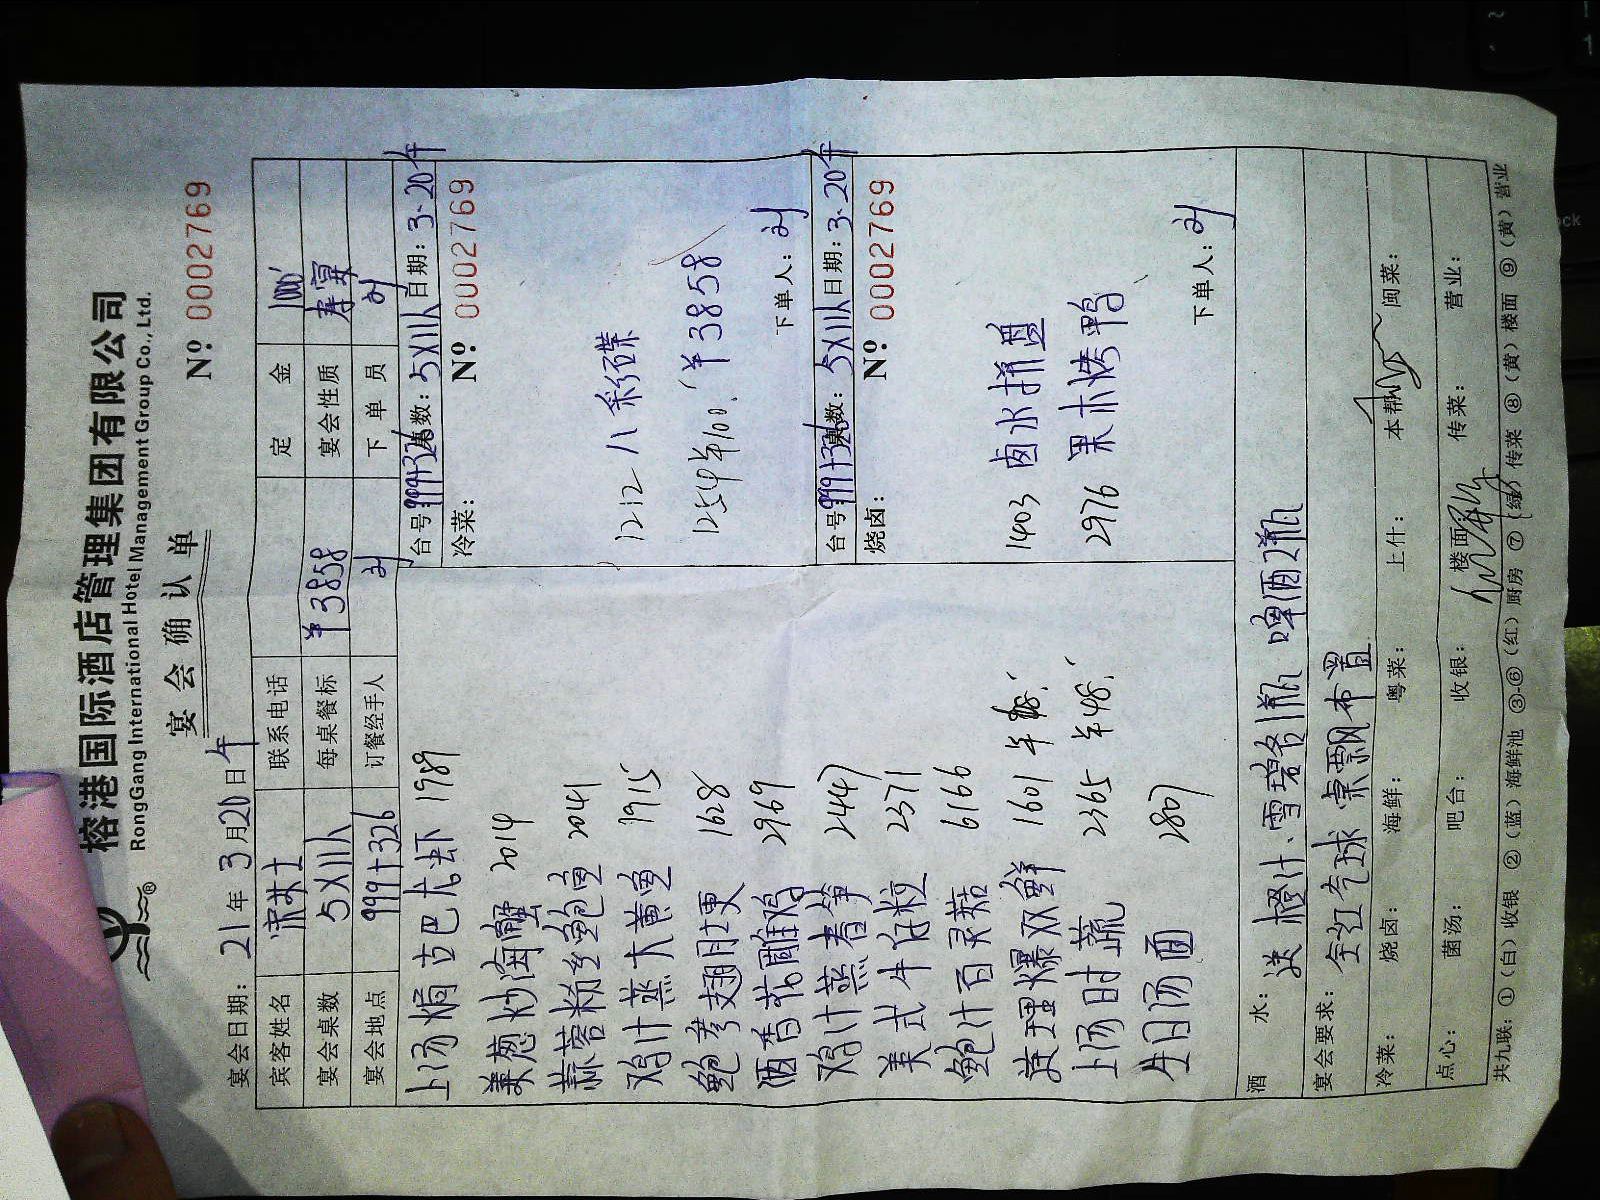 榕港国际酒店管理集团有限公司
RongGang International Hotel Management Group Co., Ltd.
®
宴会确认单
Nº: 0002769
宴会日期: 21年3月20日午
宾客姓名 联系电话 定金 1000
宴会桌数 5×11人 每桌餐标 ¥3858 宴会性质 寿宴
宴会地点 999+326 订餐经手人 刘 下单员 刘
上汤焗古巴龙虾 1989
姜葱炒海蟹 2014
蒜蓉粉丝鲍鱼 2041
鸡汁蒸大黄鱼 1915
鲍参翅肚羹 1628
酒香花雕鸡 2969
鸡汁蒸春笋 2447
美式牛仔粒 2371
鲍汁百灵菇 6166
爆双鲜 1601
上汤时蔬 2365 半48.
生日汤面 2807
台号: 999+326 桌数: 5×11人 日期: 3.20午
冷菜: Nº: 0002769
1212 八彩碟
1254 半100. ¥3858
下单人: 刘
台号: 999+326 桌数: 5×11人 日期: 3.20午
烧卤: Nº: 0002769
1403 卤水拼盘
2976 果木烤鸭
下单人: 刘
酒水: 送橙汁、雪碧各1瓶 啤酒2瓶
宴会要求: 全红气球 布置
冷菜: 烧卤: 海鲜: 粤菜: 上什: 本帮: 闽菜:
点心: 菌汤: 吧台: 收银: 楼面: 传菜: 营业:
共九联: ①(白)收银 ②(蓝)海鲜池 ③-⑥(红)厨房 ⑦(绿)传菜 ⑧(黄)楼面 ⑨(黄)营业